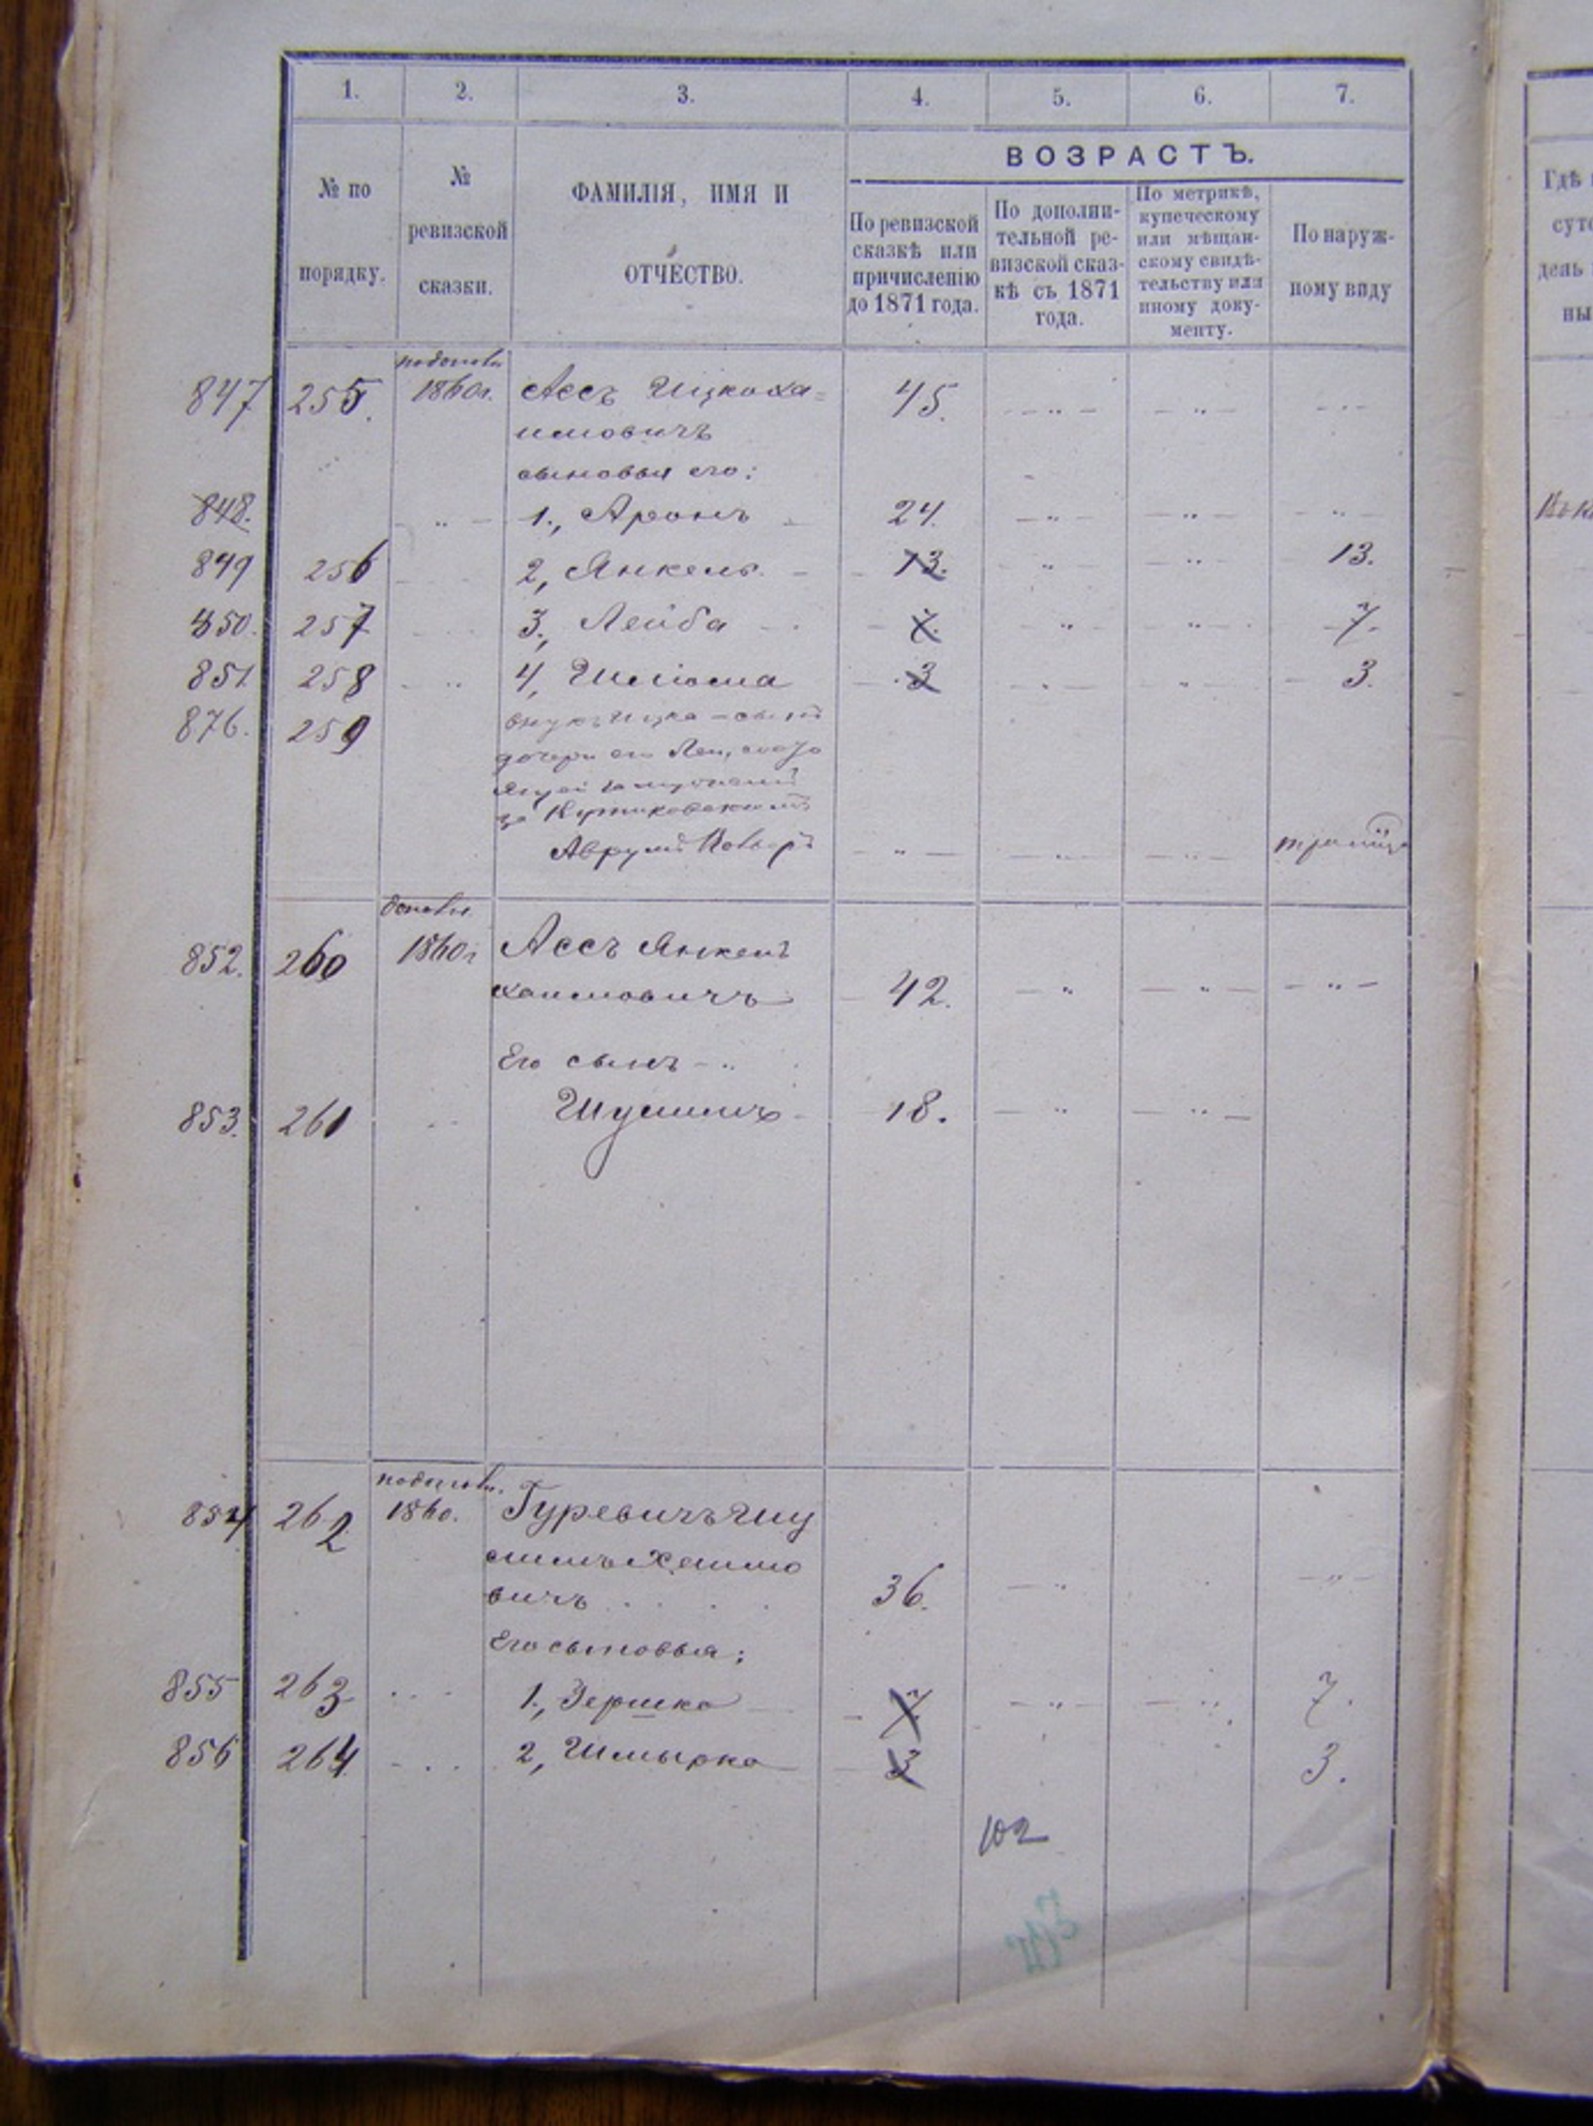 1. 2. 3. 4. 5. 6. 7.
ВОЗРАСТЪ.
№ по
порядку.
№
ревизской
сказки.
ФАМИЛІЯ, ИМЯ И
ОТЧЕСТВО.
По ревизской
сказкѣ или
причисленію
до 1871 года.
По дополни-
тельной ре-
визской сказ-
кѣ съ 1871
года.
По метрикѣ,
купеческому
или мѣщан-
скому свидѣ-
тельству или
иному доку-
менту.
По наруж-
ному виду
Гдѣ
847 255. 1860г. Ассъ Ицко Ха- 45.
имовичъ
сыновья его:
848. 1., Аронъ 24.
849 256 2, Янкель 13. 13.
850. 257 3., Лейба 7. 7.
851 258 4, Шліома 3 3.
876. 259 внукъ Ицка - сынъ
дочери его
за
Аврумъ
852. 260 1860г Ассъ Янкель
Хаимовичъ 42.
Его сынъ
853. 261 Шусимъ 18.
854 262 1860. Гуревичъ Шу
симъ Хаимо
вичъ 36.
Его сыновья:
855 263 1., Гершко 7 7.
856 264 2, Шмырко 3 3.
102